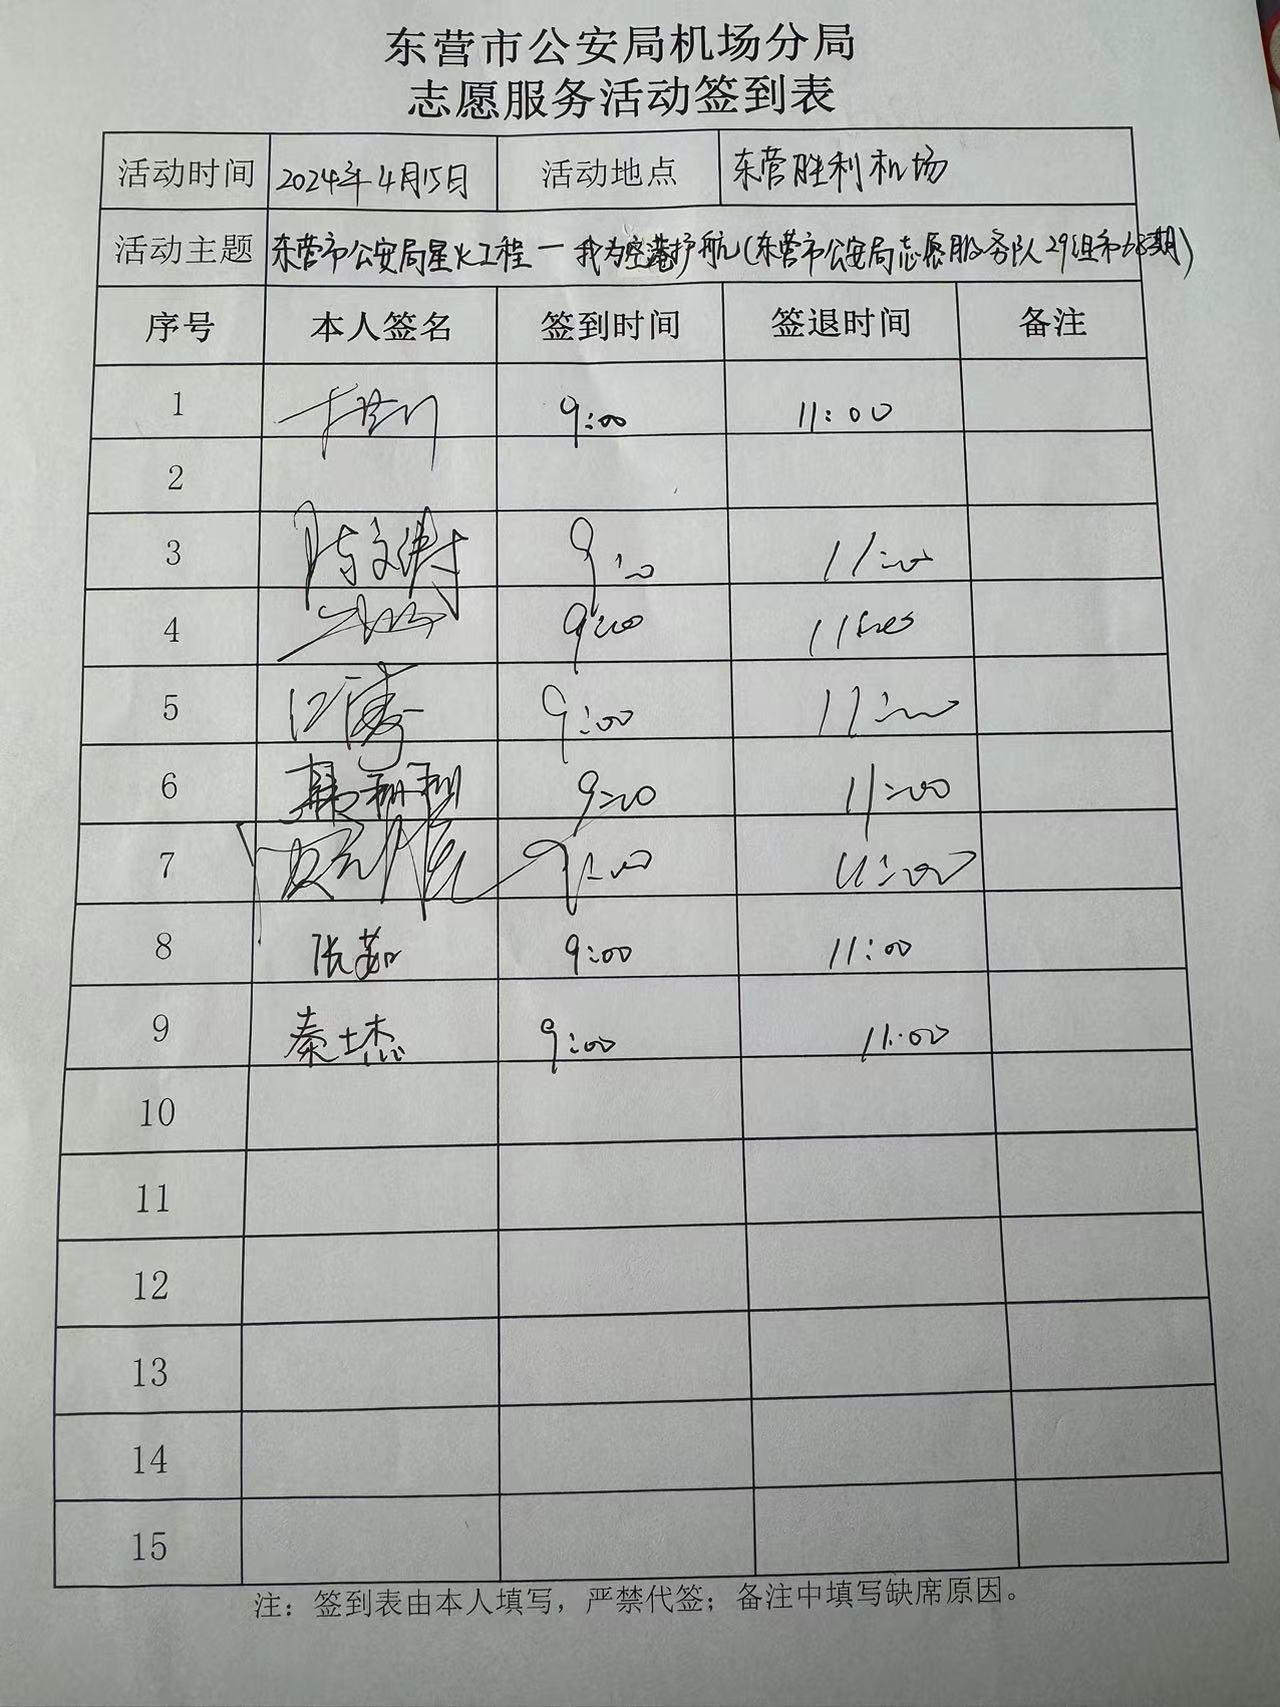 东营市公安局机场分局
志愿服务活动签到表
活动时间 2024年4月15日 活动地点 东营胜利机场
活动主题 东营市公安局星火工程一我为空港护航(东营市公安局志愿服务队29组和68期)
序号 本人签名 签到时间 签退时间 备注
1 9:00 11:00
2
3 9:00 11:00
4 9:00 11:00
5 江涛 9:00 11:00
6 韩利利 9:00 11:00
7 9:00 11:00
8 张茹 9:00 11:00
9 秦士杰 9:00 11:00
10
11
12
13
14
15
注：签到表由本人填写，严禁代签；备注中填写缺席原因。